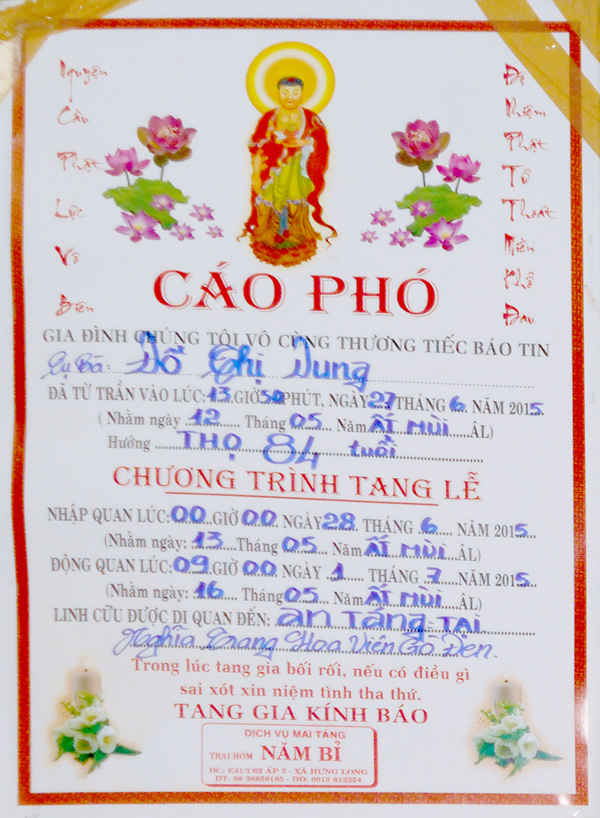 Nguyện
Cầu
Phật
Lực
Vô
Biên
Độ
Nhiệm
Phật
Tử
Thoát
Miền
Khổ
Đau
CÁO PHÓ
GIA ĐÌNH CHÚNG TÔI VÔ CÙNG THƯƠNG TIẾC BÁO TIN
Cụ Bà: Đỗ Thị Dung
ĐÃ TỪ TRẦN VÀO LÚC: 13 GIỜ 50 PHÚT, NGÀY 27 THÁNG 6 NĂM 2015
( Nhằm ngày 12 Tháng 05 Năm ẤT MÙI ÂL)
Hưởng THỌ 84 tuổi
CHƯƠNG TRÌNH TANG LỄ
NHẬP QUAN LÚC: 00 GIỜ 00 NGÀY 28 THÁNG 6 NĂM 2015
(Nhằm ngày: 13 Tháng 05 Năm ẤT MÙI ÂL)
ĐỘNG QUAN LÚC: 09 GIỜ 00 NGÀY 1 THÁNG 7 NĂM 2015
(Nhằm ngày: 16 Tháng 05 Năm ẤT MÙI ÂL)
LINH CỮU ĐƯỢC DI QUAN ĐẾN: an Táng TẠI
Nghĩa Trang Hoa Viên Gò Đen.
Trong lúc tang gia bối rối, nếu có điều gì
sai xót xin niệm tình tha thứ.
TANG GIA KÍNH BÁO
DỊCH VỤ MAI TÁNG
TRẠI HÒM NĂM BỈ
DC: E41/1/62 ẤP 5 - XÃ HƯNG LONG
ĐT: 08 38858185 - DD: 0913 612354